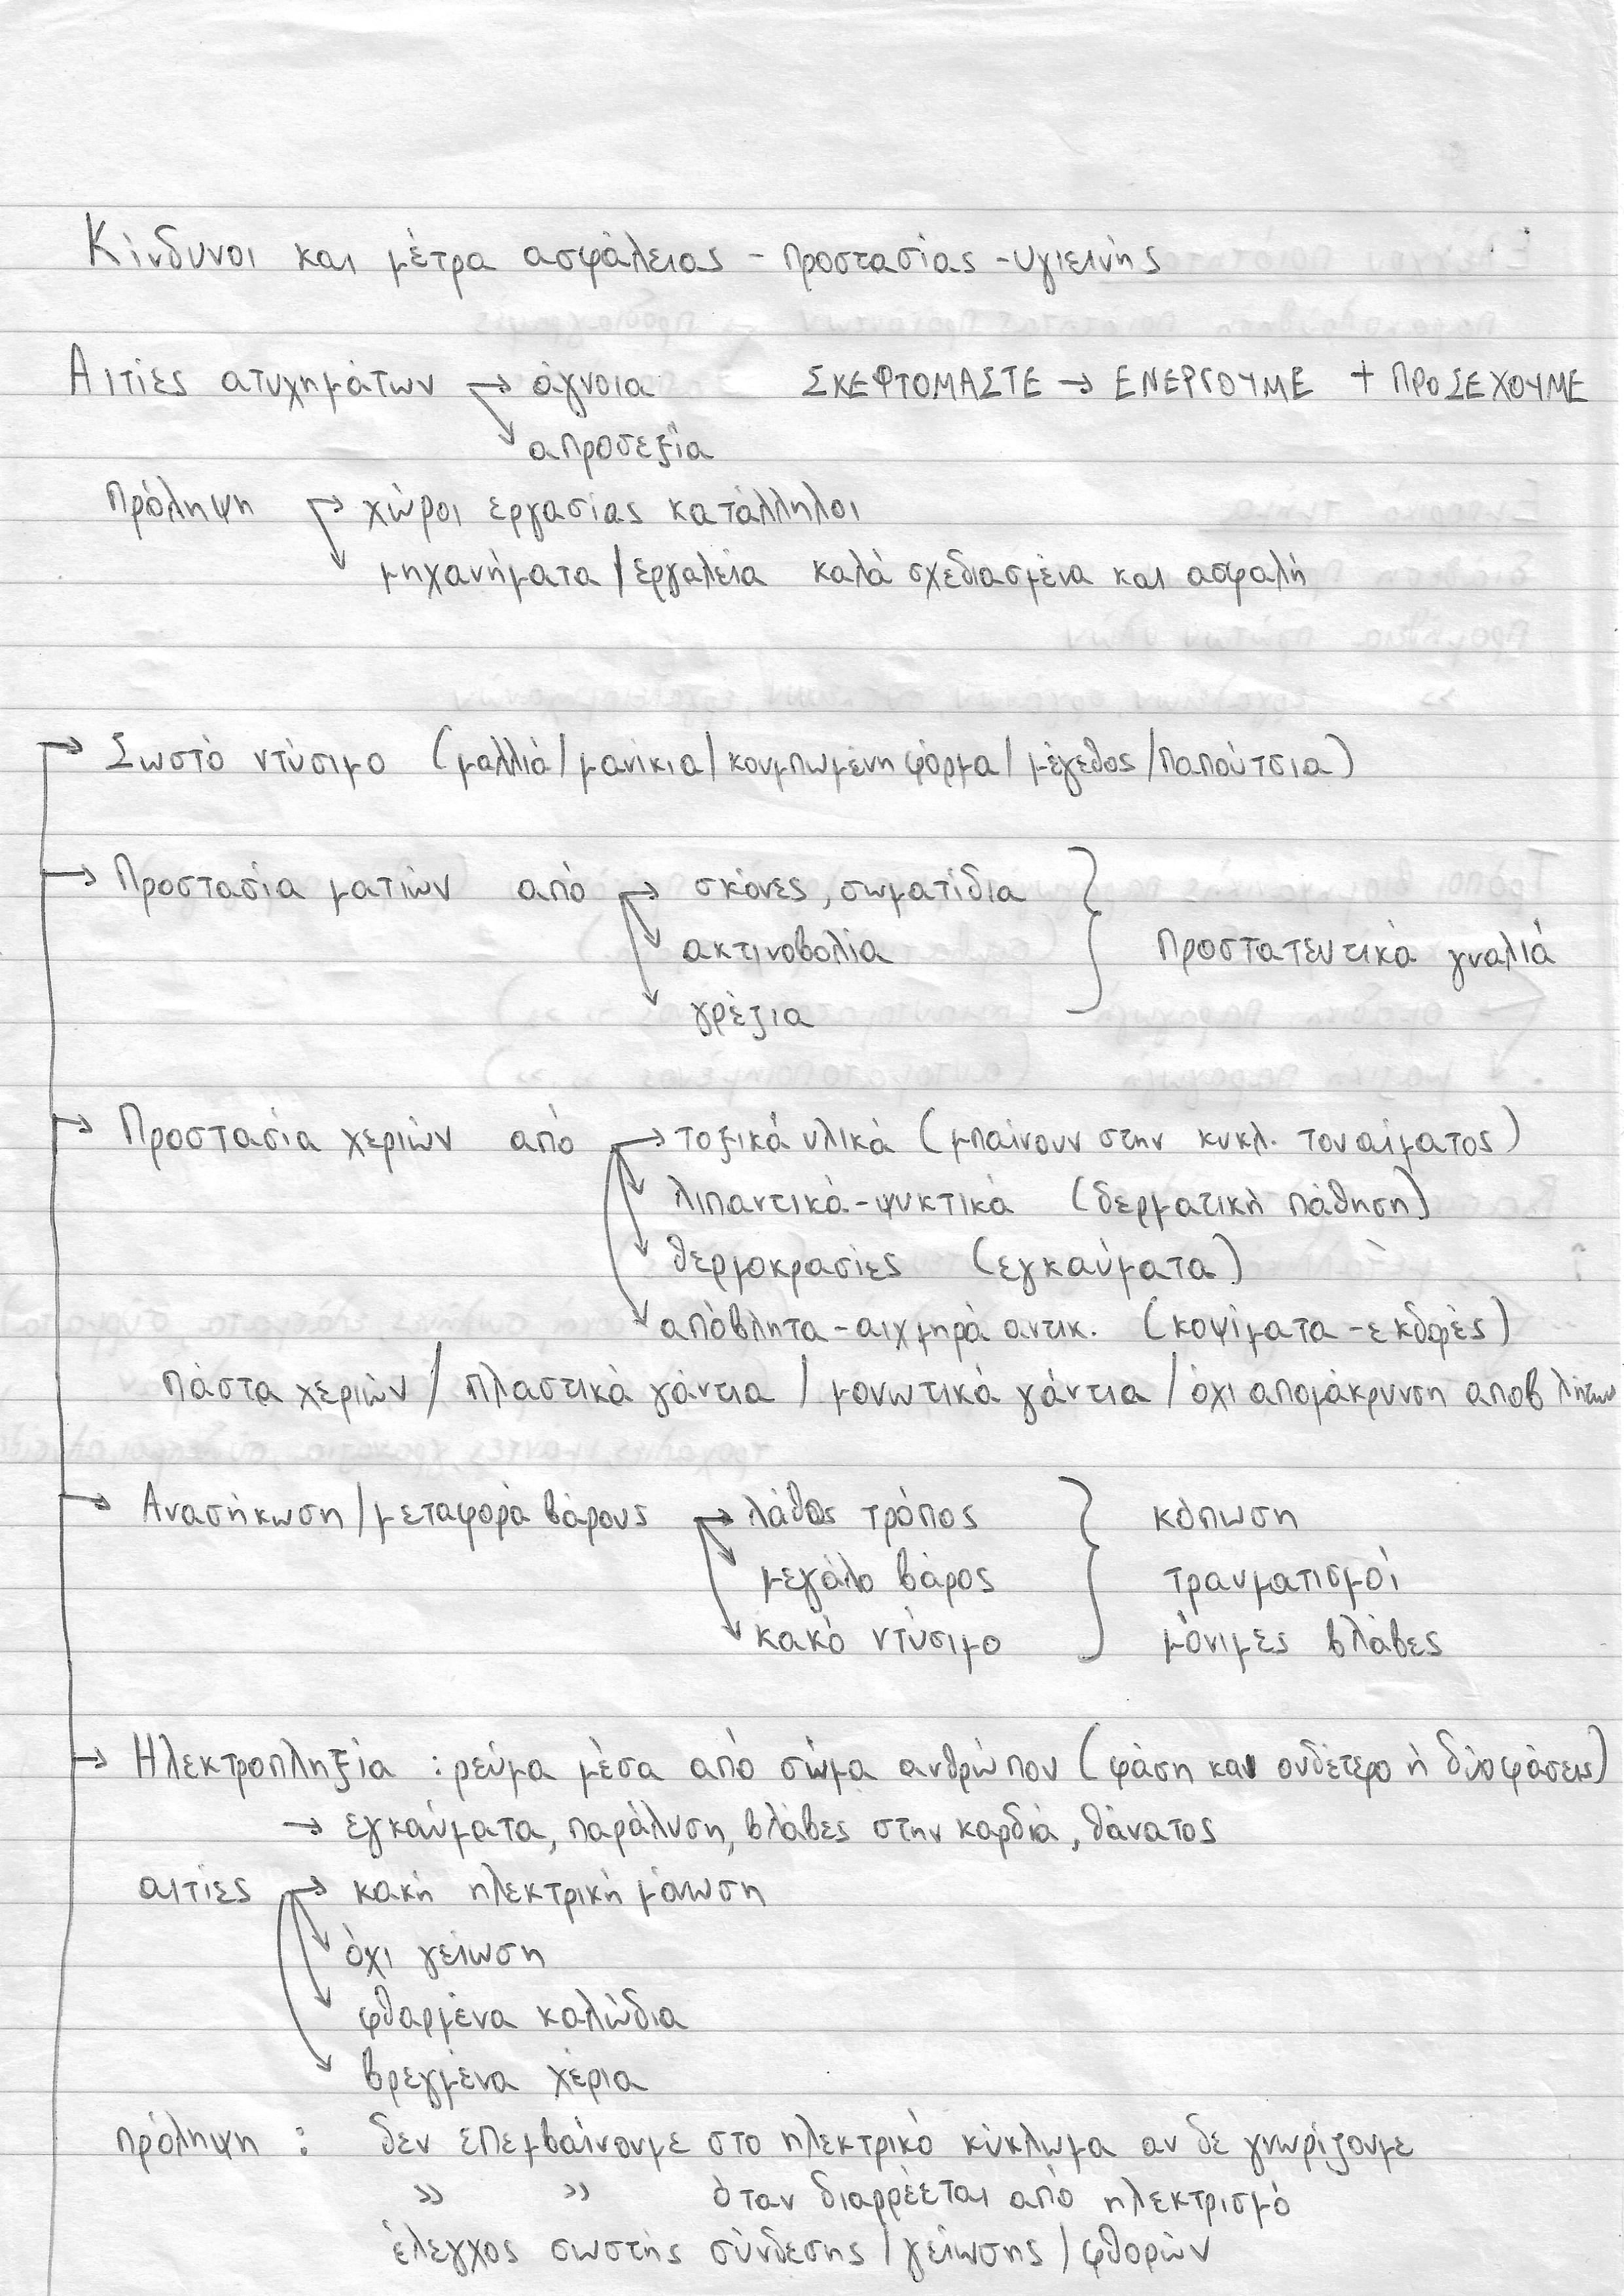 Κίνδυνοι και μέτρα ασφάλειας - προστασίας - υγιεινής
Αιτίες ατυχημάτων → άγνοια ΣΚΕΦΤΟΜΑΣΤΕ → ΕΝΕΡΓΟΥΜΕ + ΠΡΟΣΕΧΟΥΜΕ
απροσεξία
πρόληψη → χώροι εργασίας κατάλληλοι
μηχανήματα / εργαλεία καλά σχεδιασμένα και ασφαλή
→ Σωστό ντύσιμο (μαλλιά / μανίκια / κουμπωμένη φόρμα / μέγεθος / παπούτσια)
→ Προστασία ματιών από → σκόνες, σωματίδια
ακτινοβολία προστατευτικά γυαλιά
γρέζια
→ Προστασία χεριών από → τοξικά υλικά (μπαίνουν στην κυκλ. του αίματος)
λιπαντικά - ψυκτικά (δερματική πάθηση)
θερμοκρασίες (εγκαύματα)
απόβλητα - αιχμηρά αντικ. (κοψίματα - εκδορές)
πάστα χεριών / πλαστικά γάντια / μονωτικά γάντια / όχι απομάκρυνση αποβλήτων
→ Ανασήκωση / μεταφορά βάρους → λάθος τρόπος κόπωση
μεγάλο βάρος τραυματισμοί
κακό ντύσιμο μόνιμες βλάβες
→ Ηλεκτροπληξία : ρεύμα μέσα από σώμα ανθρώπου (φάση και ουδέτερο ή δύο φάσεις)
→ εγκαύματα, παράλυση, βλάβες στην καρδιά, θάνατος
αιτίες → κακή ηλεκτρική μόνωση
όχι γείωση
φθαρμένα καλώδια
βρεγμένα χέρια
πρόληψη : δεν επεμβαίνουμε στο ηλεκτρικό κύκλωμα αν δε γνωρίζουμε
» » όταν διαρρέεται από ηλεκτρισμό
έλεγχος σωστής σύνδεσης / γείωσης / φθορών